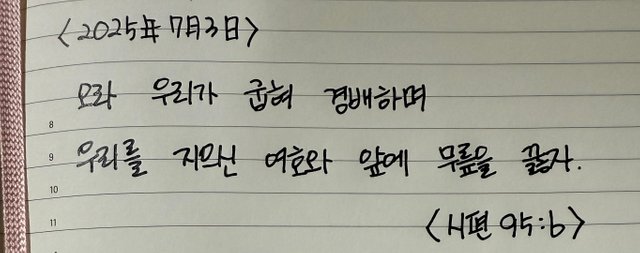 <2025年 7月 3日>
오라 우리가 굽혀 경배하며
8
9 우리를 지으신 여호와 앞에 무릎을 꿇자.
10
11 <시편 95:6>